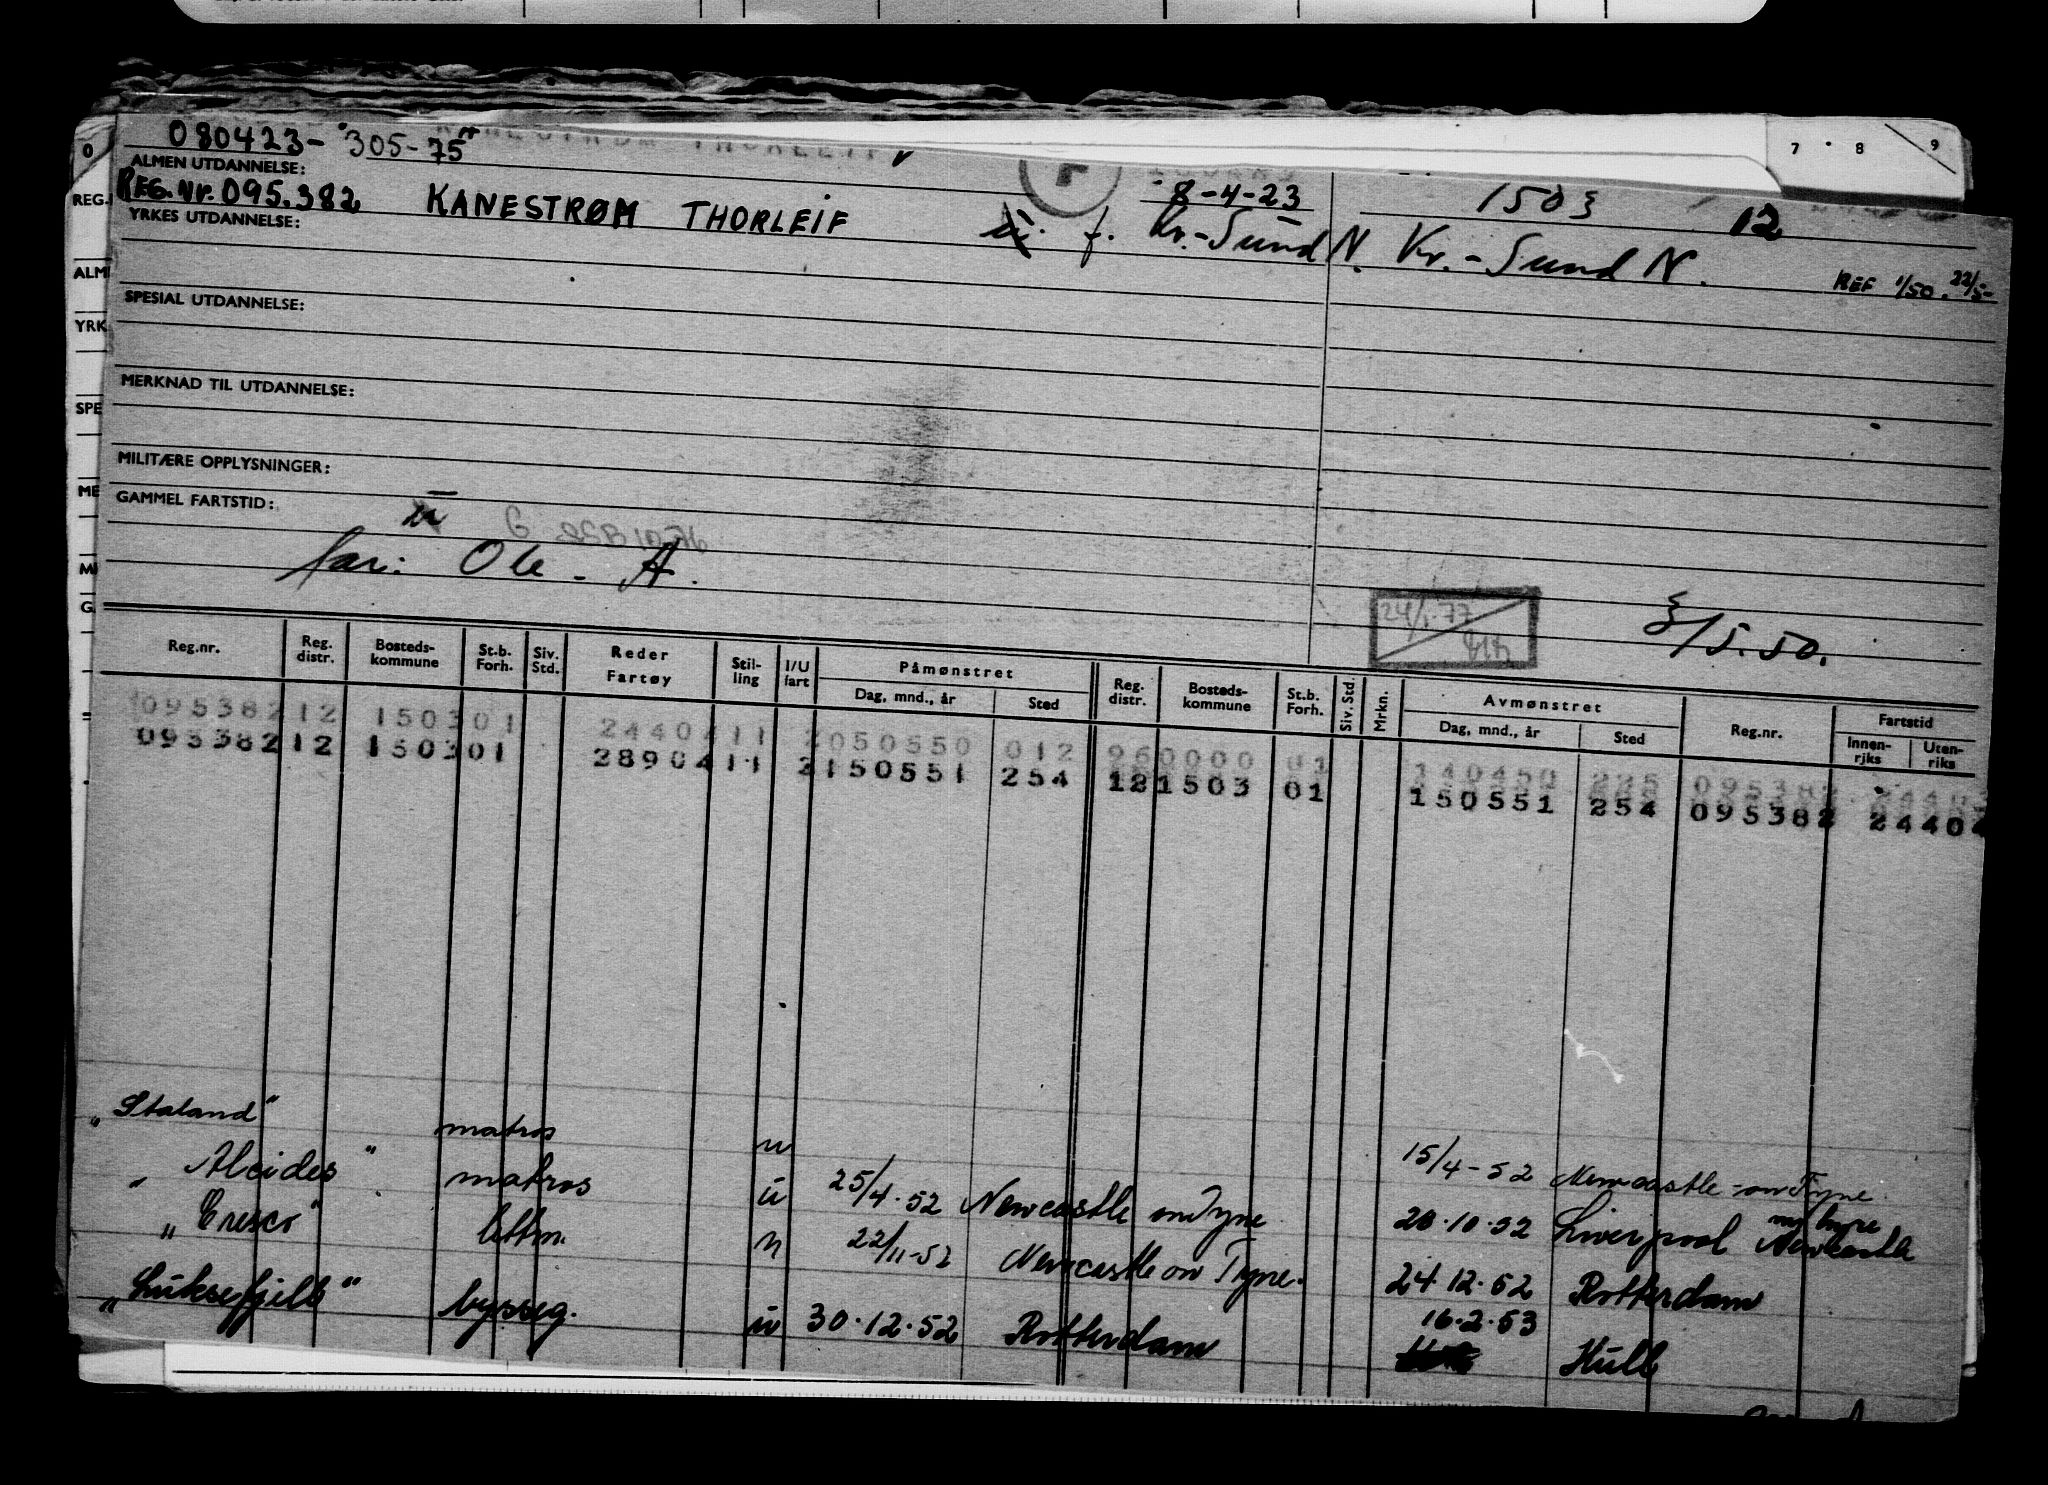 080423-305-75
KANESTRØM THORLEIF
ALMEN UTDANNELSE:
REG. NR. 095.382 KANESTRØM THORLEIF 8-4-23 1503 12
YRKES UTDANNELSE:
f. Kr.-Sund N. Kr.-Sund N.
REF 1/50. 22/5-
SPESIAL UTDANNELSE:
MERKNAD TIL UTDANNELSE:
MILITÆRE OPPLYSNINGER:
GAMMEL FARTSTID:
far: Ole - A.
24/1-77
3/5.50.
Reg.nr. Reg. distr. Bosteds-kommune St.b. Forh. Siv. Std. Reder Fartøy Stil-ling I/U fart Påmønstret Dag, mnd., år Sted Reg. distr. Bosteds-kommune St.b. Forh. Siv. Std. Mrkn. Avmønstret Dag, mnd., år Sted Reg.nr. Fartstid Innen-rjks Uten-riks
095382 12 1503 01 2440411 2050550 012 960000 01 140450 225 095382
095382 12 1503 01 2890411 2150551 254 12 1503 01 150551 254 095382 24404
"Staland" matros u 15/4-52 Newcastle-on Tyne
"Alcides" matros u 25/4.52 Newcastle on Tyne 20.10.52 Liverpool my hyre Newcastle
"Cresco" u 22/11-52 Newcastle on Tyne. 24.12.52 Rotterdam
"Luksefjell" bysseg. u 30.12.52 Rotterdam 16.2.53 Hull
REG.
ALM
YRK
SPE
ME
MI
G.
7 8 9